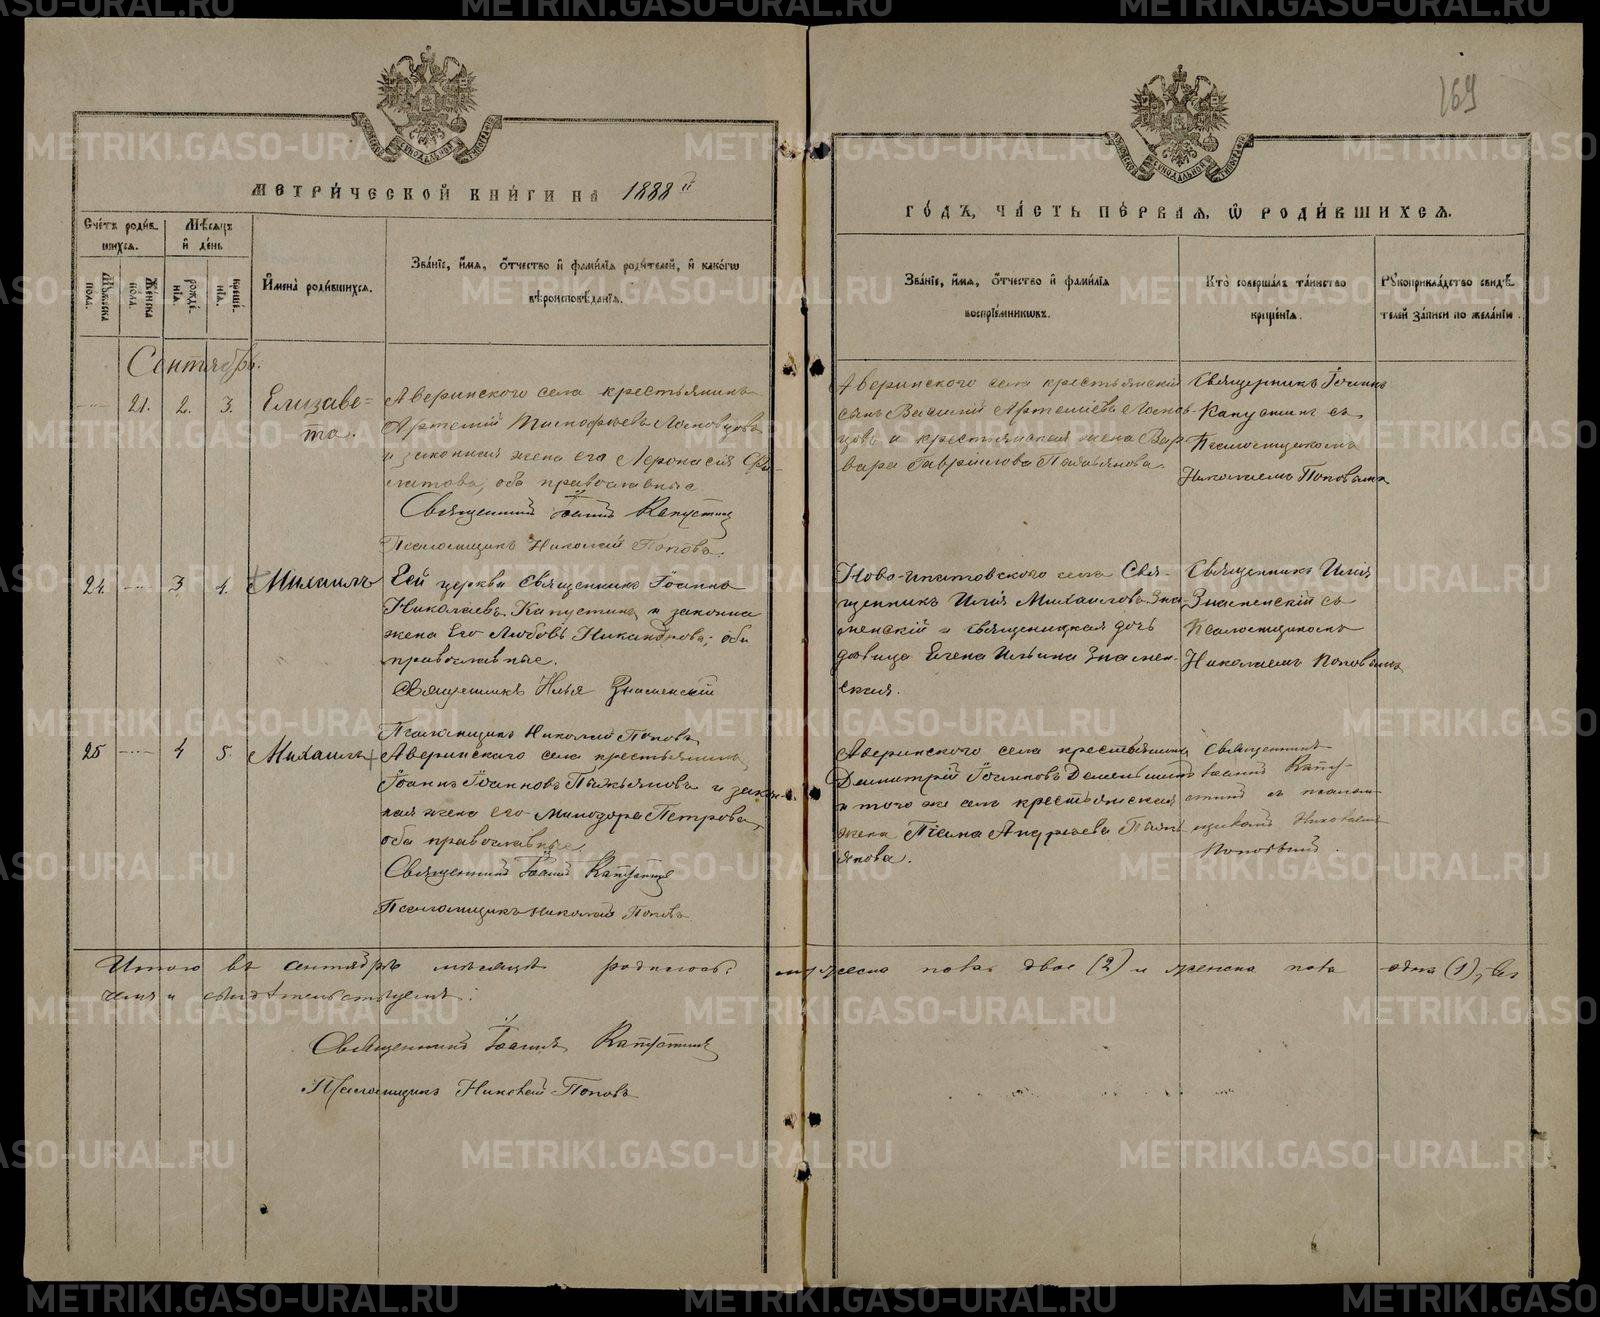 169
МЕТРИ́ЧЕСКОЙ КНИ́ГИ НА 1888й
ГО́ДЪ, ЧА́СТЬ ПЕ́РВАЯ, Ѡ РОДИ́ВШИХСЯ.
Сче́тъ роди́в-
шихся.
Мѣ́сяцъ
и де́нь
Му́жеска
пола.
Же́нска
пола.
рожде́-
нія.
креще́-
нія.
Имена̀ роди́вшихся.
Зва́ніе, имя, о́тчество и фами́лія роди́телей, и како́гѡ
вѣроисповѣ́данія.
Зва́ніе, имя, о́тчество и фами́лія
воспріе́мниковъ.
Кто̀ соверша́лъ та́инство
креще́нія.
Рукоприкла́дство свидѣ́-
телей за́писи по жела́нію.
Сентябрь.
21. 2. 3. Елизаве=
та.
Аверинского села крестьянинъ
Артемій Логовцовъ
и законная жена его
оба православные
Священникъ Іоаннъ Капустинъ
Псаломщикъ Николай Поповъ.
Аверинского села крестьянскій
сынъ Василій Артеміевъ
и крестьянская жена Вар-
вара Гавріилова Пьянкова.
Священникъ Іоаннъ
Капустинъ съ
Псаломщикомъ
Николаемъ Поповымъ
24. 3 4. Михаилъ
Сей церкви Священникъ Іоаннъ
Николаевъ Капустинъ и законная
жена Его Любовь Никандрова; оба
православные.
Священникъ Илья Знаменскій
Псаломщикъ Николай Поповъ
Ново-ипатовского села Свя-
щенникъ Илія Михаиловъ Зна-
менскій и священническая дочь
дѣвица Елена Ильина Знамен-
ская.
Священникъ Илія
Знаменскій съ
Псаломщикомъ
Николаемъ Поповымъ
25 4 5. Михаилъ
Аверинского села крестьянинъ
Іоаннъ Іоанновъ и закон-
ная жена его Минодора Петрова,
оба православные
Священникъ Іоаннъ Капустинъ
Псаломщикъ Николай Поповъ
Аверинского села крестьянинъ
Димитрій Іоанновъ
и того же села крестьянская
жена Андреева
Священникъ
Іоаннъ Капу-
стинъ съ псалом-
щикомъ Николаемъ
Поповымъ.
Итого въ сентябрѣ мѣсяцѣ родилось: мужеска пола двое (2) и женска пола одна (1), въ
чемъ и свидѣтельствуемъ:
Священникъ Іоаннъ Капустинъ
Псаломщикъ Николай Поповъ
METRIKI.GASO-URAL.RU